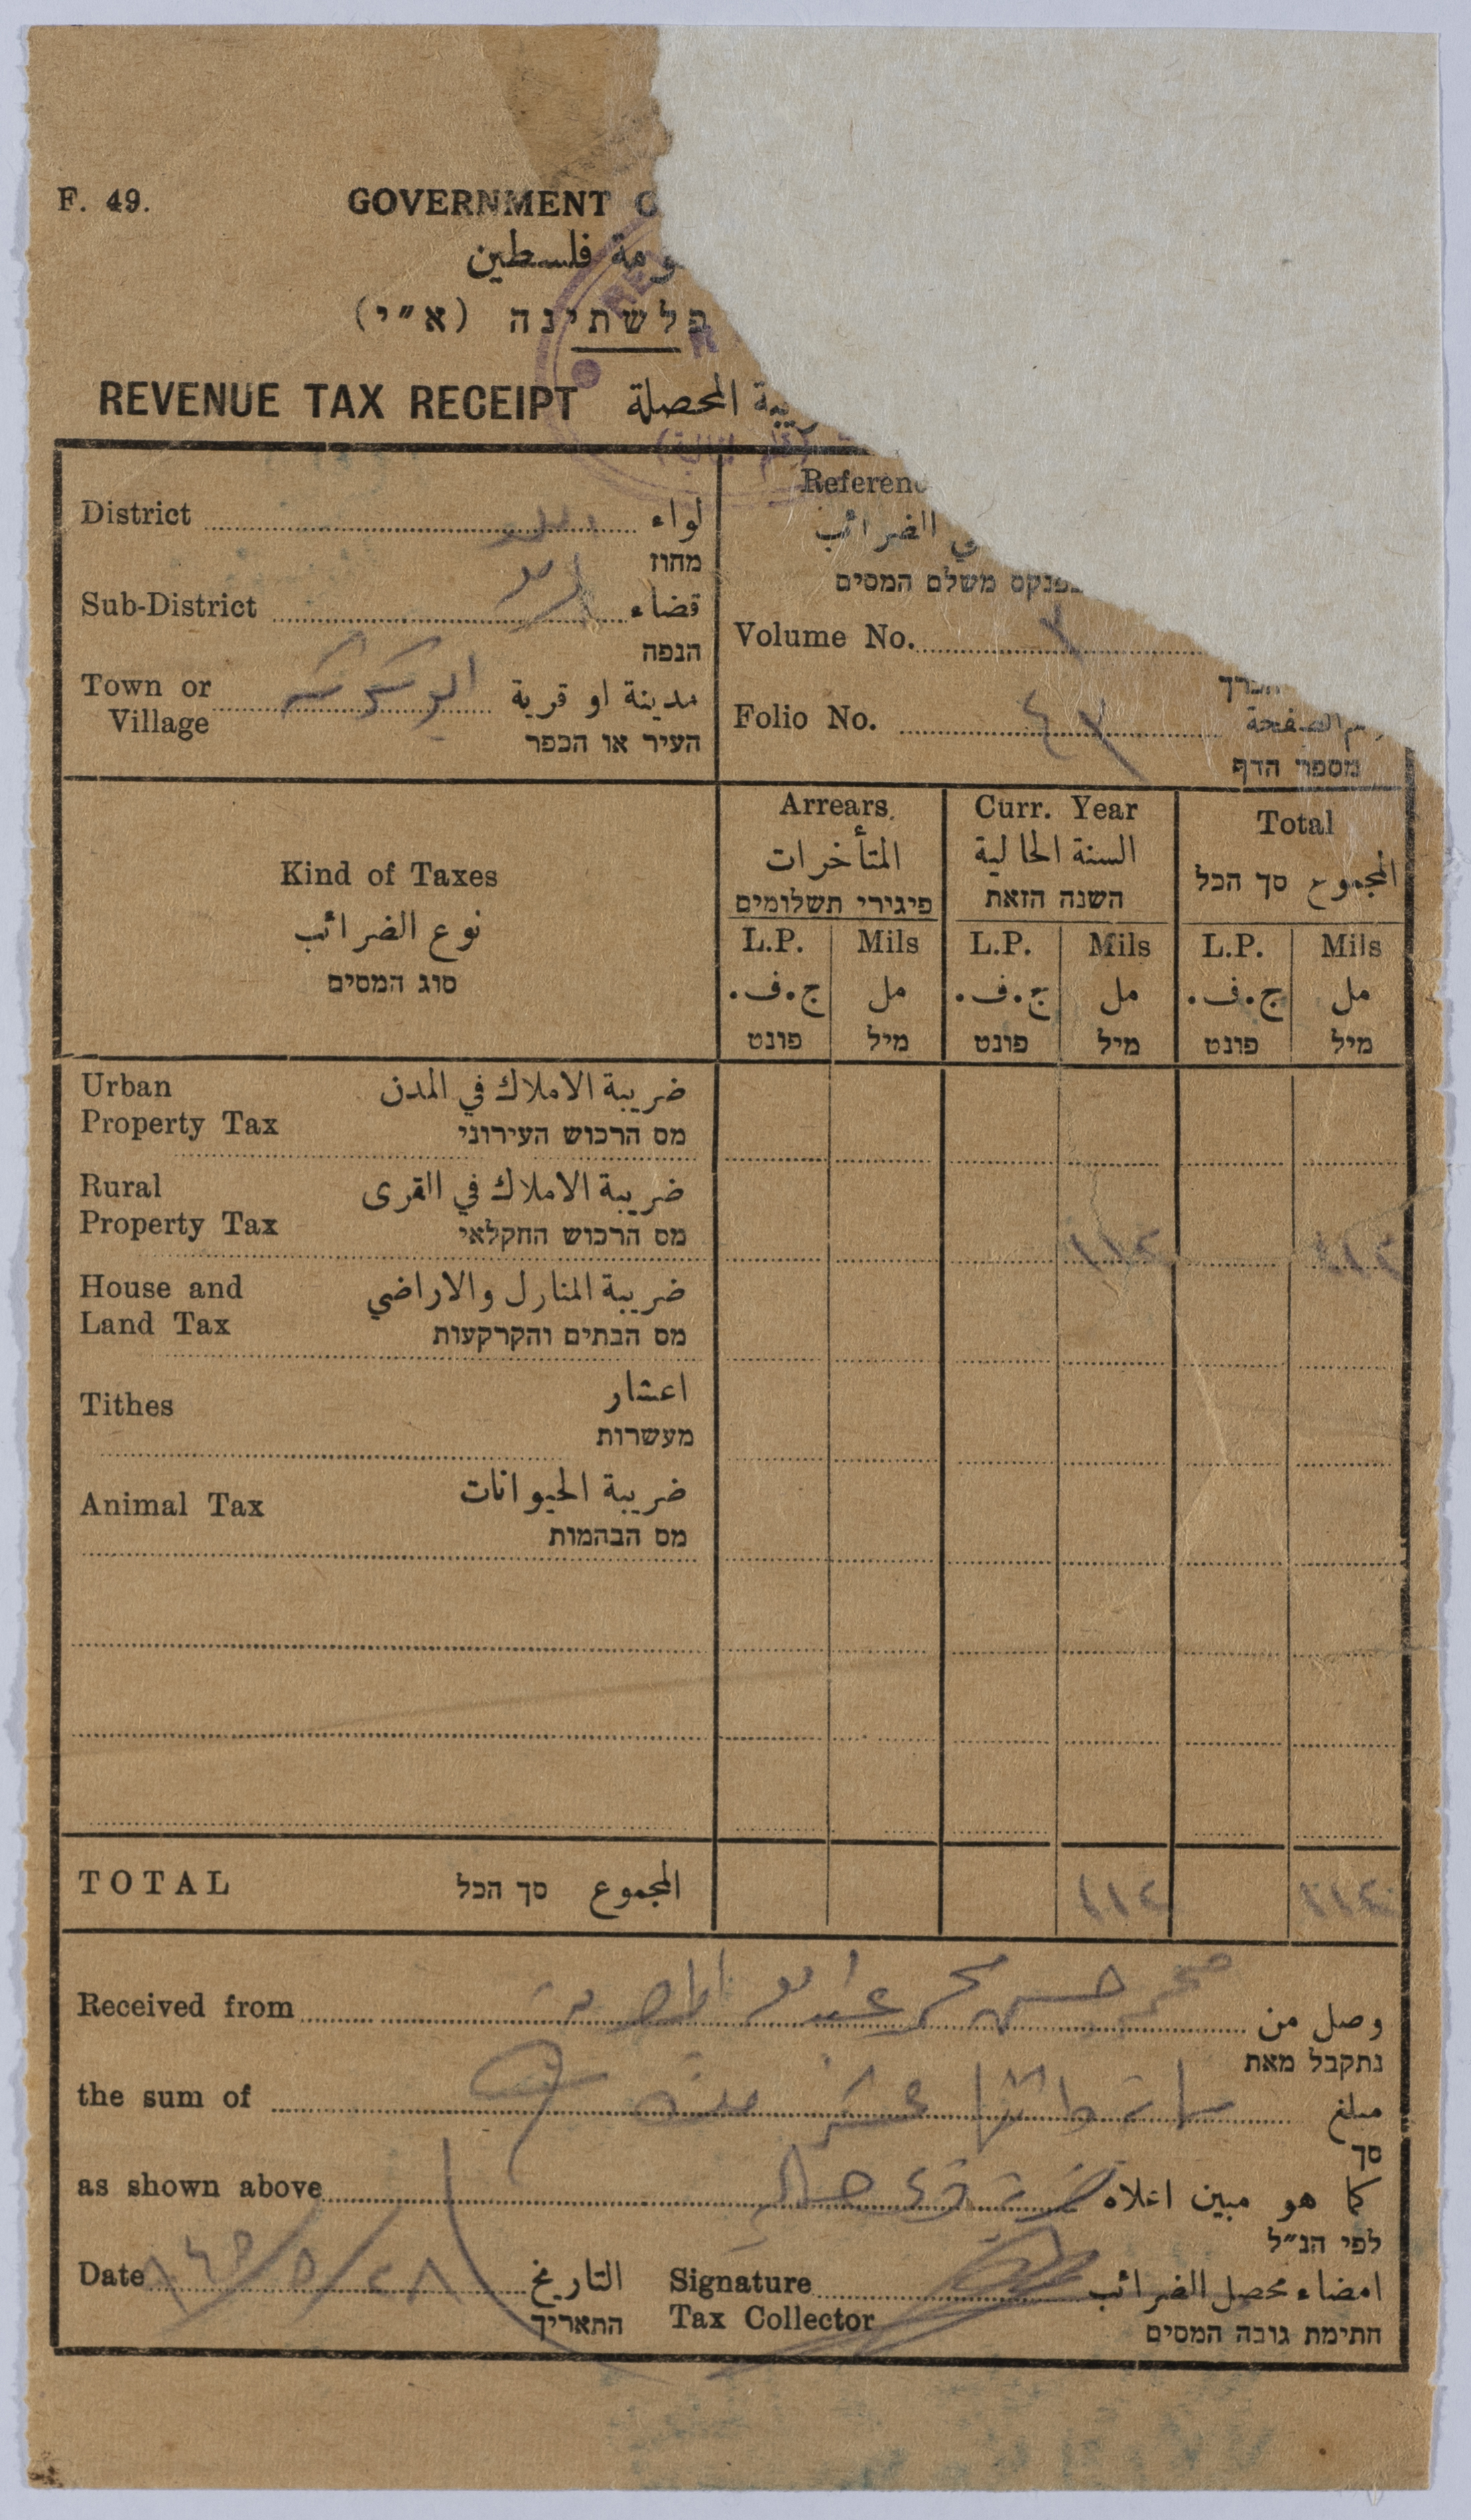 F. 49.
GOVERNMENT O
ومة فلسطين
פלשתינה (א״י)
REVENUE TAX RECEIPT يبة المحصلة
District لواء
מחוז
Sub-District قضاء
הנפה
Town or Village مدينة او قرية
העיר או הכפר
Referenc
ي الضرائب
פנקס משלם המסים
Volume No. ٣
Folio No. ٤٢ الصفحة
מספר הדף
Kind of Taxes
نوع الضرائب
סוג המסים
Arrears. Curr. Year Total
المتأخرات السنة الحالية المجموع סך הכל
פיגורי תשלומים השנה הזאת
L.P. Mils L.P. Mils L.P. Mils
ج.ف. مل ج.ف. مل ج.ف. مل
פונט מיל פונט מיל פונט מיל
Urban ضريبة الاملاك في المدن
Property Tax מס הרכוש העירוני
Rural ضريبة الاملاك في القرى
Property Tax מס הרכוש החקלאי
House and ضريبة المنازل والاراضي
Land Tax מס הבתים והקרקעות
Tithes اعشار
מעשרות
Animal Tax ضريبة الحيوانات
מס הבהמות
TOTAL المجموع סך הכל ١١٢ ١١٢
Received from محمد حسن محمد وصل من
נתקבל מאת
the sum of مبلغ
סך
as shown above كما هو مبين اعلاه
לפי הנ״ל
Date التاريخ
התאריך
Signature امضاء محصل الضرائب
Tax Collector חתימת גובה המסים